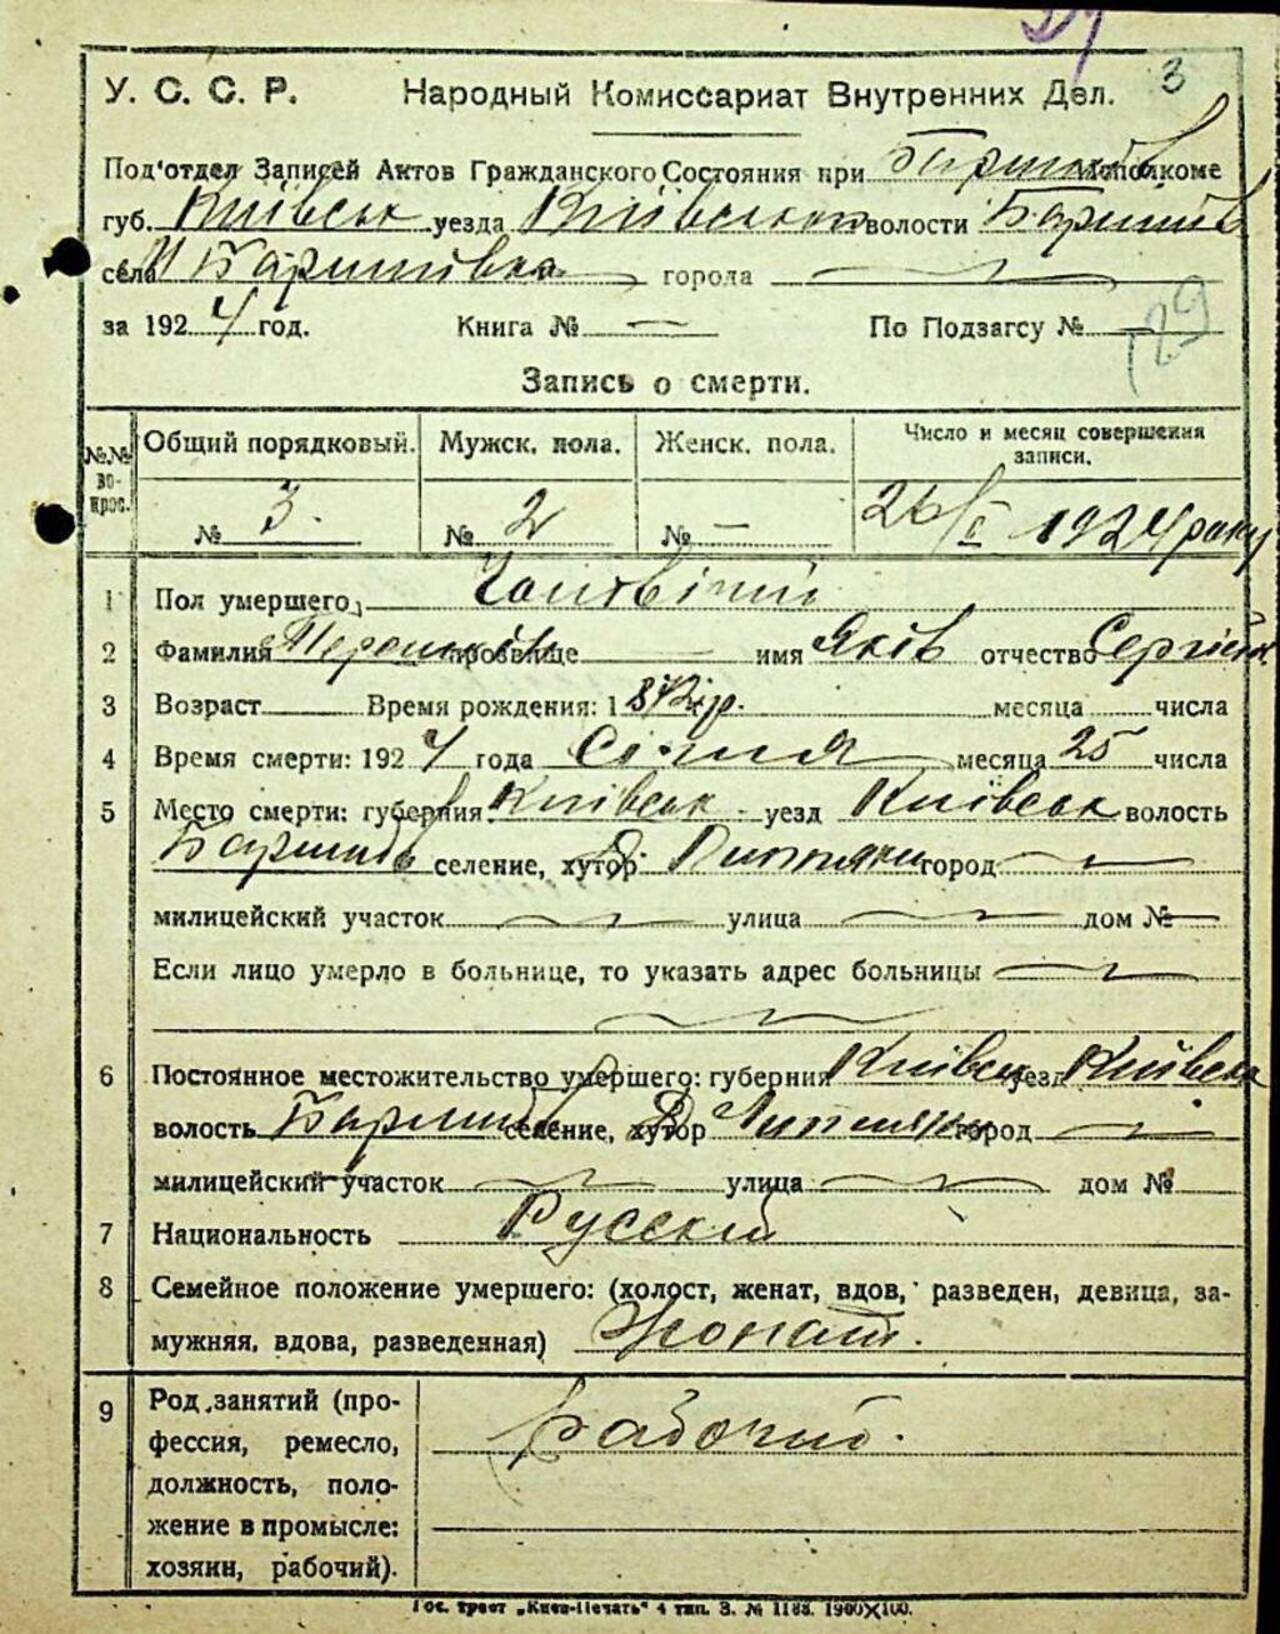 3
У. С. С. Р. Народный Комиссариат Внутренних Дел.
Под'отдел Записей Актов Гражданского Состояния при Исполкоме
губ. Київськ уезда Київського волости Баришів
села Баришівка города
за 1924 год. Книга № — По Подзагсу № —
129
Запись о смерти.
№№ вопрос. Общий порядковый. Мужск. пола. Женск. пола. Число и месяц совершения записи.
№ 3. № 2 № — 26/I 1924 року
1 Пол умершего, Чоловічий
2 Фамилия прозвище — имя Яків отчество
3 Возраст Время рождения: 1 месяца числа
4 Время смерти: 1924 года Січня месяца 25 числа
5 Место смерти: губерния Київськ уезд Київськ волость
Баришів селение, хутор город —
милицейский участок — улица — дом № —
Если лицо умерло в больнице, то указать адрес больницы —
6 Постоянное местожительство умершего: губерния Київськ уезд Київськ
волость Баришів селение, хутор город —
милицейский участок — улица — дом №
7 Национальность Русский
8 Семейное положение умершего: (холост, женат, вдов, разведен, девица, за-
мужняя, вдова, разведенная) Жонат.
9 Род занятий (про-
фессия, ремесло, рабочий.
должность, поло-
жение в промысле:
хозяин, рабочий).
Гос. трест „Киев-Печать" 4 тип. З. № 1188. 1900X100.